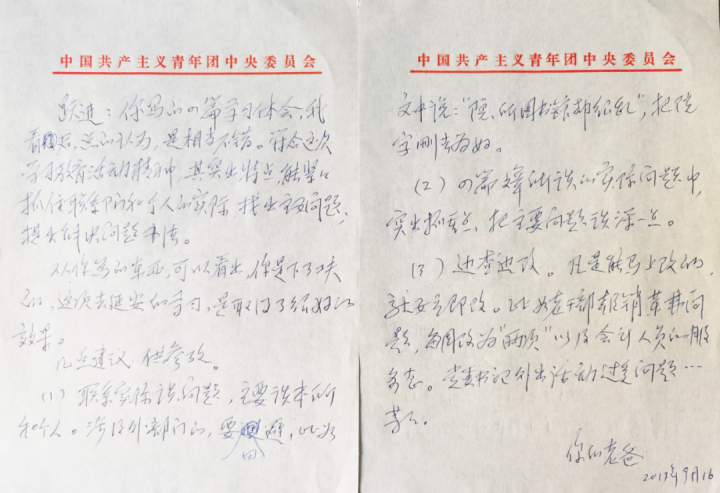 中国共产主义青年团中央委员会
跃进：你写的4篇学习体会，我
看后，总的认为，是相当不错。符合这次
学习教育活动精神，其突出特点，能紧紧
抓住联系部门和个人的实际，找出主要问题，
提出解决问题办法。
从你写的东西，可以看出，你是下了功夫
的，这次去延安的学习，是取得了很好的
效果。
几点建议，供参考。
(1) 联系实际谈问题，主要谈本所
和个人。涉及外部门的，要回避，比如
中国共产主义青年团中央委员会
文中说："院、所图书馆都很乱"，把院
字删去为好。
(2) 4篇文章所谈的实际问题中，
突出抓重点，把主要问题谈深一点。
(3) 边查边改。凡是能马上改的，
就立即改。比如老干部报销药费问
题，每周改为"两次"以及会计人员的服
务态。党委书记外出活动过多问题…
等等。
你的老爸
2013年9月16